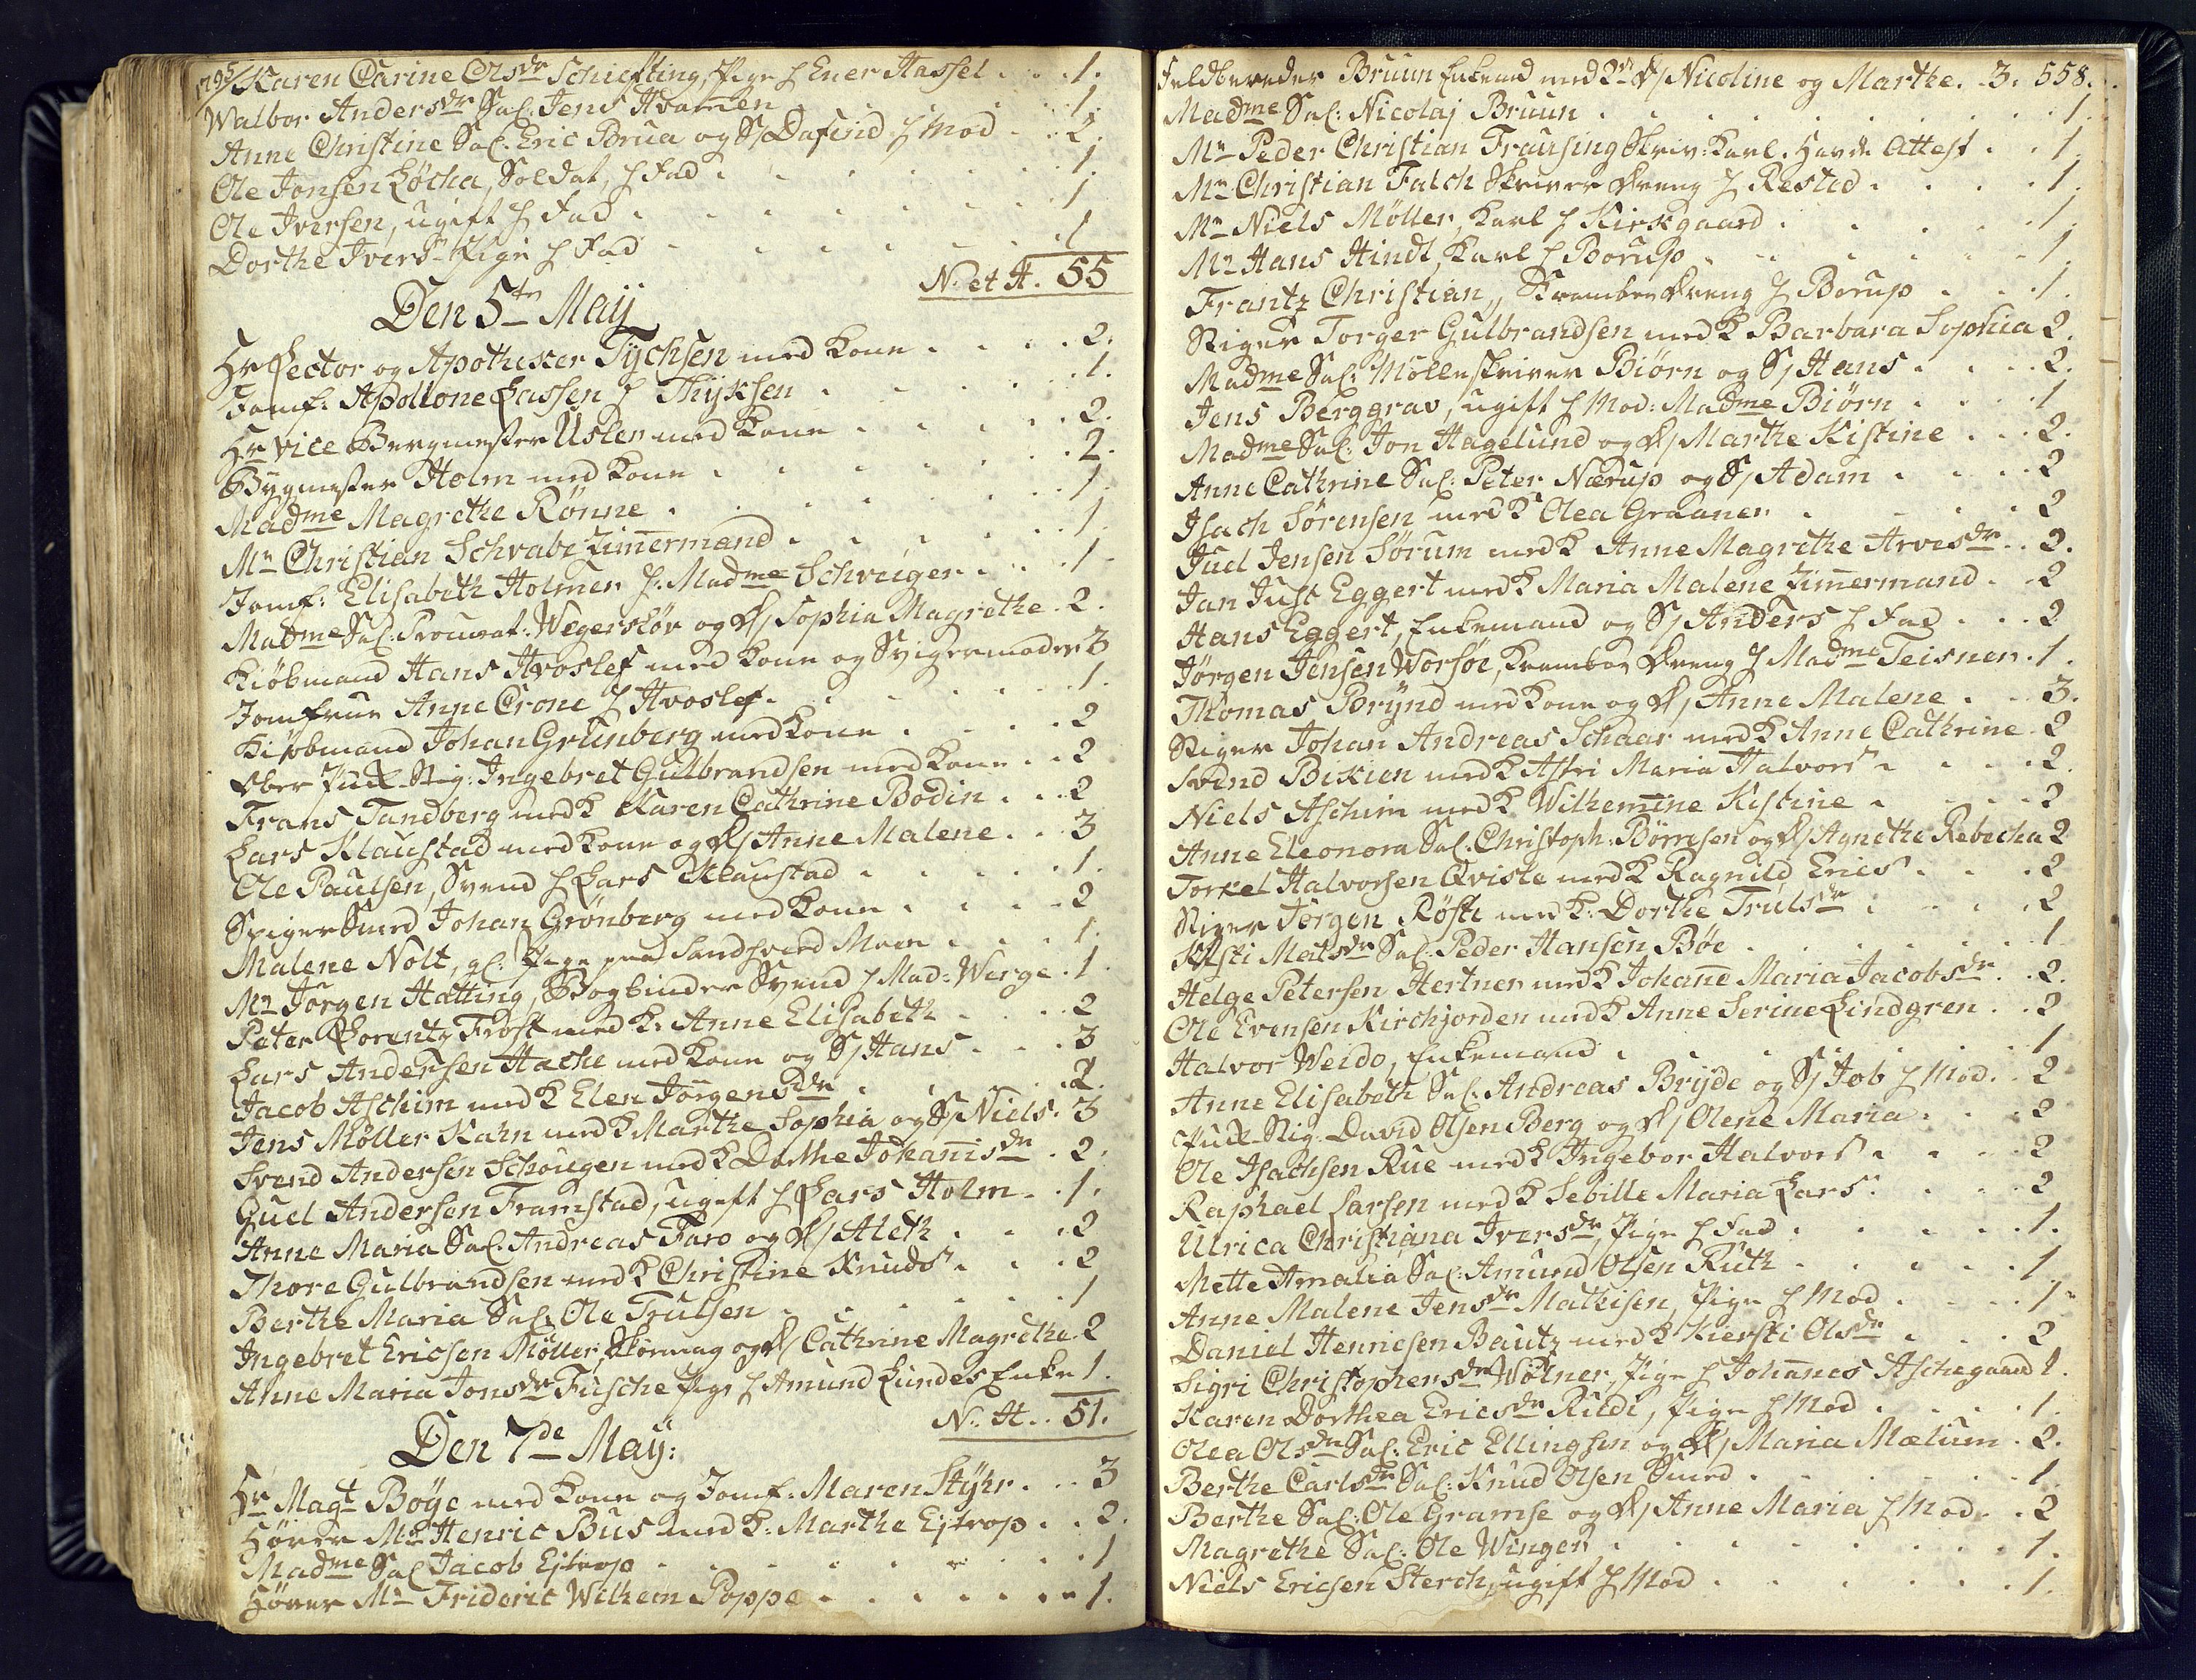 1795/ Karen Carine Olsdr Schiefting, Pige h Ener Hassel . . 1.
Walbor Andersdr Sal. Jens Hvamen . . . 1.
Anne Christine Sal. Eric Brua og S/ Dafind h Mod . . 2.
Ole Jonsen Løcha, Soldat, h Fad . . . 1.
Ole Iversen, ugift h Fad . . . 1
Dorthe Ivers Pige h Fad . . . 1
N. et H. 55
Den 5te Maij
Hr Lector og Apotheker Tychsen med Kone . . . 2.
Jomf. Apollone Lassen h Thyksen . . . 1.
Hr Vice Bergmester Usler med Kone . . . 2.
Bygmester Holm med Kone . . . 2.
Madme Magrethe Rønne . . . 1
Mr Christian Schvabe Zimermand . . . 1
Jomf: Elisabeth Holmer h. Madme Schveiger . . . 1
Madme Sal. Wegersløv og D/ Sophia Magrethe . 2.
Kiøbmand Hans Hvoslef med Kone og Svigermoder 3
Jomfrue Anne Crone h Hvoslef . . . 1.
Kiøbmand Johan Grünberg med Kone . . . 2
Ober Stig: Ingebret Gulbrandsen med Kone . . 2
Frans Tandberg med K Karen Cathrine Bodin . . . 2
Lars Klaustad med Kone og D/ Anne Malene . . 3
Ole Paulsen, Svend h Lars Klaustad . . . 1.
Spigersmed Johan Grönberg med Kone . . . 2
Malene Nolt, gl: Pige paa Sandsverd Moen . . . 1.
Mr Jörgen Hatting, Bogbinder Svend h Mad: Werge . 1.
Peter Lorentz Frost med K. Anne Elisabeth . . . 2
Lars Andersen Hache med Kone og S/ Hans . . . 3
Jacob Aschim med K Elen Jörgensdr . . . 2.
Jens Møller Kahn med K Marthe Sophia og S/ Niels. 3
Svend Andersen Schougen med K Dorthe Johanisdr . 2.
Guel Andersen Framstad, ugift h Lars Holm . . 1.
Anne Maria Sal. Andreas Faro og D/ Aleth . . . 2
Thore Gulbrandsen med K Christine Knuds . . . 2
Berthe Maria Sal. Ole Trulsen . . . 1
Ingebret Ericsen Möller, og D/ Cathrine Magrethe. 2
Anne Maria Jonsdr Fusche Pige h Amund Lundes Enke 1.
N. H. . 51.
Den 7de Maij:
Hr Magt Böye med Kone og Jomf. Maren Stÿhr . . . 3
Hører Mr Henric Bus med K. Marthe Ejtrop . . 2.
Madme Sal Jacob Ejtrop . . . 1
Hører Mr Frideric Wilhem Poppe . . . 1.
Feldbereder Bruun Enkemd med 2de D/ Nicoline og Marthe. . 3. 558.
Madme Sal. Nicolaj Bruun . . . 1.
Mr Peder Christian Frausing Skriv: Karl. Havde Attest . . 1.
Mr Christian Falch Skriver Dreng h Rested . . . 1.
Mr Niels Møller, Karl h Kirkgaard . . . 1.
Mr Hans Hindt, Karl h Borup . . . 1.
Frantz Christian, Krambod Dreng h Borup . . . 1.
Stiger Torger Gulbrandsen med K Barbara Sophia 2.
Madme Sal: Möllerskriver Biörn og S/ Hans . . . 2.
Jens Berggrav, ugift h Mod: Madme Biörn . . . 1
Madme Sal. Jon Hagelund og D/ Marthe Kistine . . . 2.
Anne Cathrine Sal: Peter Nærup og S/ Adam . . . 2
Isach Sörensen med K Olea Graaner . . . 2
Juel Jensen Sörum med K Anne Magrethe Arvesdr . . 2.
Jan Just Eggert med K Maria Malene Zimermand . . 2
Hans Eggert, Enkemand og S/ Anders h Fad . . . 2
Jörgen Jensen Worsöe, Krambod Dreng h Madme Teisner . 1.
Thomas Brÿnd med Kone og D/ Anne Malene . . . 3.
Stiger Johan Andreas Schaar med K Anne Cathrine . 2
Svend Bikien med K Astri Maria Halvors . . . 2.
Niels Aschim med K. Wilhemine Kistine . . . 2
Anne Eleonora Sal. Christoph: Börresen og D/ Agnethe Rebecha 2
Torkel Halvorsen Qviste med K Ragnild Erics . . . 2
Stiger Jörgen Röste med K. Dorthe Trulsdr . . . 2
Kisti Matsdr Sal. Peder Hansen Böe . . . 1
Helge Petersen Hertner med K Johane Maria Jacobsdr . . 2.
Ole Evensen Kirchjorden med K Anne Serine Lindgren . . 2
Halvor Weido, Enkemand . . . 1
Anne Elisabeth Sal. Andreas Bryde og S/ Job h Mod. . 2
Stig. David Olsen Berg og D/ Olene Maria . . . 2
Ole Isachsen Rue med K Ingebor Halvors . . . 2
Raphael Larsen med K Sebille Maria Lars . . . 2
Ulrica Christiana Iversdr, Pige h Fad . . . 1.
Mette Amalia Sal: Amund Olsen Ruth . . . 1.
Anne Malene Jensdr Mathisen, Pige h Mod . . . 1
Daniel Henricsen Bautz med K Kiersti Olsdr . . . 2
Sigri Christophersdr Wölner, Pige h Johanes Aschegaard 1.
Karen Dorthea Ericsdr Riidi, Pige h Mod . . . 1.
Olea Olsdr Sal. Eric Ellingsen og D/ Maria Mælum . 2.
Berthe Carlsdr Sal. Knud Olsen Smed . . . 1.
Berthe Sal. Ole Gramse og D/ Anne Maria h Mod. . . 2
Magrethe Sal. Ole Winger . . . 1.
Niels Ericsen Sterch, ugift h Mod . . . 1.